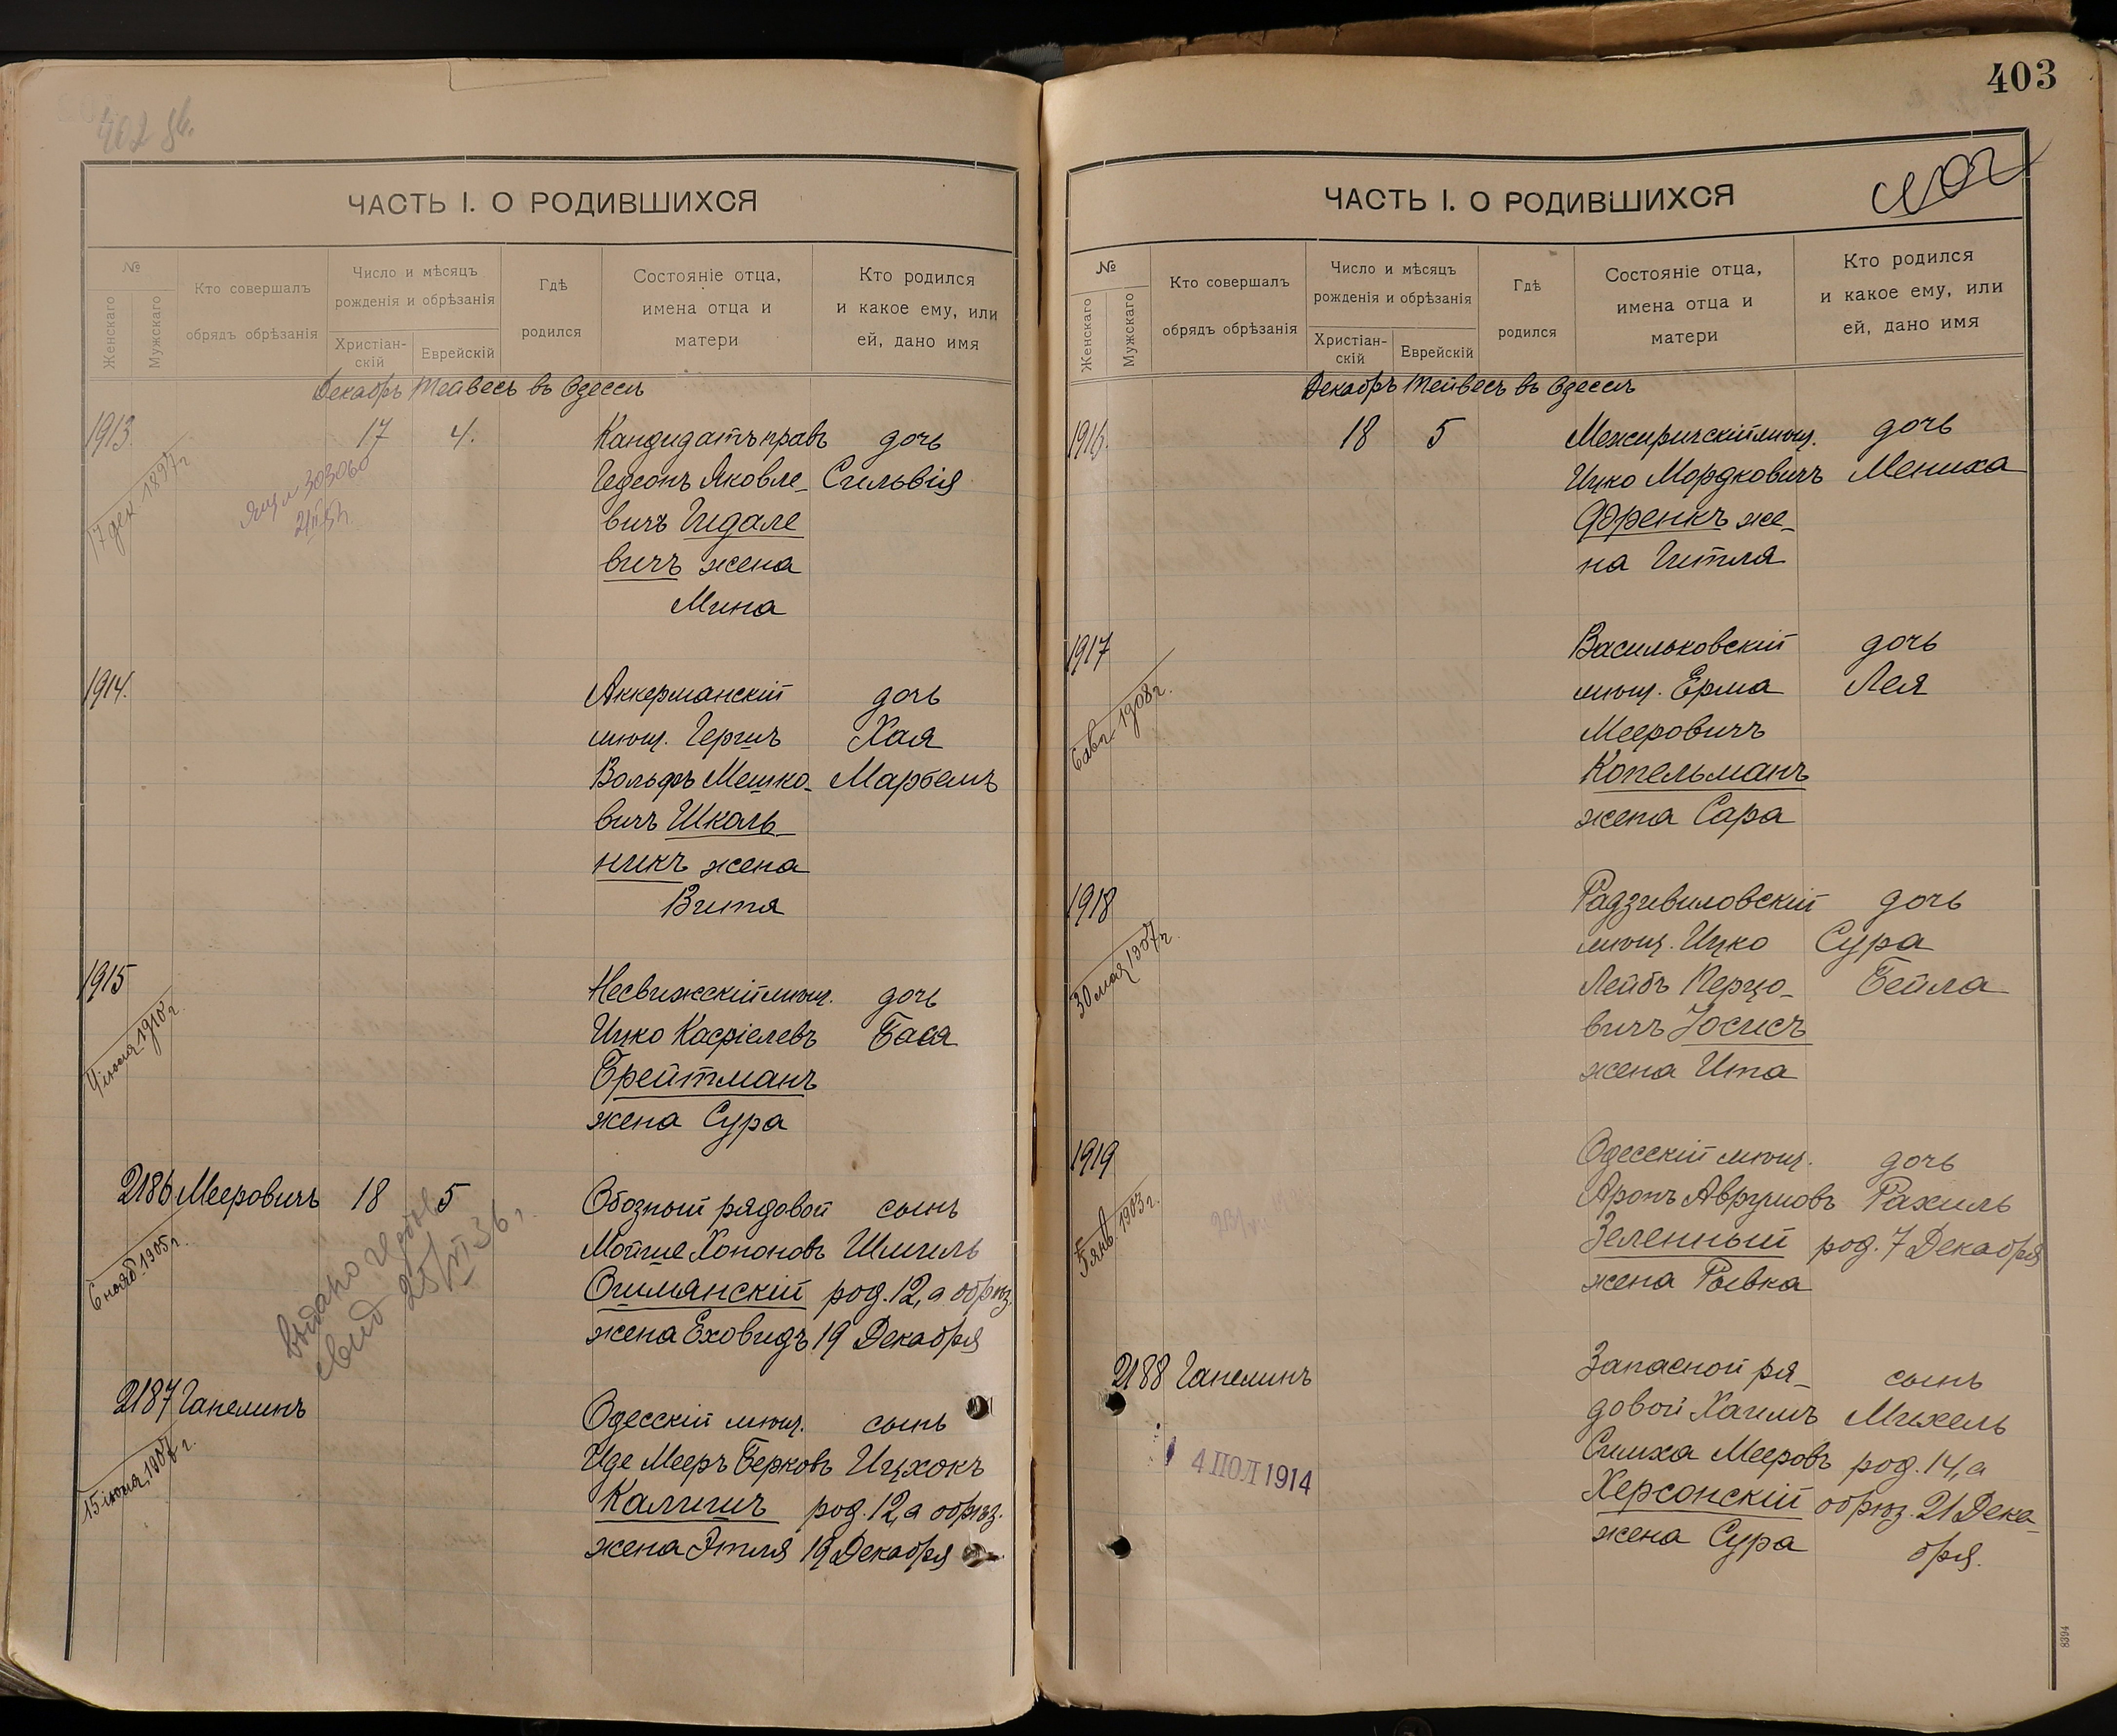 403
ЧАСТЬ I. О РОДИВШИХСЯ
№
Женскаго
Мужскаго
Кто совершалъ
обрядъ обрѣзанія
Число и мѣсяцъ
рожденія и обрѣзанія
Христіан-
скій
Еврейскій
Гдѣ
родился
Состояніе отца,
имена отца и
матери
Кто родился
и какое ему, или
ей, дано имя
Декабрь Тейвесъ въ Одессѣ
1913.
17 дек. 1897 г.
17
4.
Кандидатъ правъ
Гедеонъ Яковле-
вичъ Гидале
вичъ жена
Мина
дочь
Сильвія
1914.
Аккерманскій
мѣщ. Гершъ
Вольфъ Мешко-
вичъ Школь-
никъ жена
Витя
дочь
Хая
1915
1910 г.
Несвижскій мѣщ.
Ицко
Брейтманъ
жена Сура
дочь
Бася
2186 Мееровичъ
6 нояб. 1905 г.
18
5
выдано
свид 25/VI 36 г.
Обозный рядовой
Мойше Хононовъ
Ошмянскій
жена Еховидъ
сынъ
Шмиль
род. 12, а обрѣз.
19 Декабря
2187 Ганелинъ
15 іюня 1907 г.
Одесскій мѣщ.
Иде Мееръ Берковъ
Калишъ
жена Этля
сынъ
Ицхокъ
род. 12, а обрѣз.
19 Декабря
ЧАСТЬ I. О РОДИВШИХСЯ
№
Женскаго
Мужскаго
Кто совершалъ
обрядъ обрѣзанія
Число и мѣсяцъ
рожденія и обрѣзанія
Христіан-
скій
Еврейскій
Гдѣ
родился
Состояніе отца,
имена отца и
матери
Кто родился
и какое ему, или
ей, дано имя
Декабрь Тейвесъ въ Одессѣ
1916.
18
5
Межиричскій мѣщ.
Ицко Мордковичъ
Френкъ же-
на Гитля
дочь
Мениха
1917
6 авг. 1908 г.
Васильковскій
мѣщ. Ерма
Мееровичъ
Копельманъ
жена Сара
дочь
Лея
1918
30 мая 1907 г.
Радзивиловскій
мѣщ. Ицко
Лейбъ Перцо-
вичъ Іосисъ
жена Ита
дочь
Сура
Бейла
1919
5 янв. 1903 г.
Одесскій мѣщ.
Аронъ Аврумовъ
Зеленный
жена Ривка
дочь
Рахиль
род. 7 Декабря
2188 Ганелинъ
4 ІЮЛ 1914
Запасной ря-
довой Хаимъ
Симха Мееровъ
Херсонскій
жена Сура
сынъ
Михель
род. 14, а
обрѣз. 21 Дека-
бря.
8394